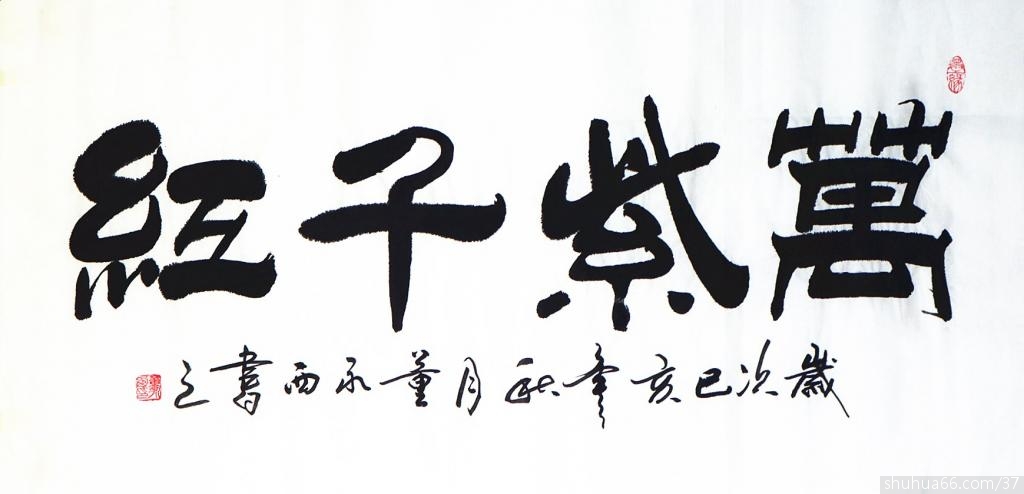 萬紫千紅
歲次己亥年秋月董永西書之
shuhua66.com/37